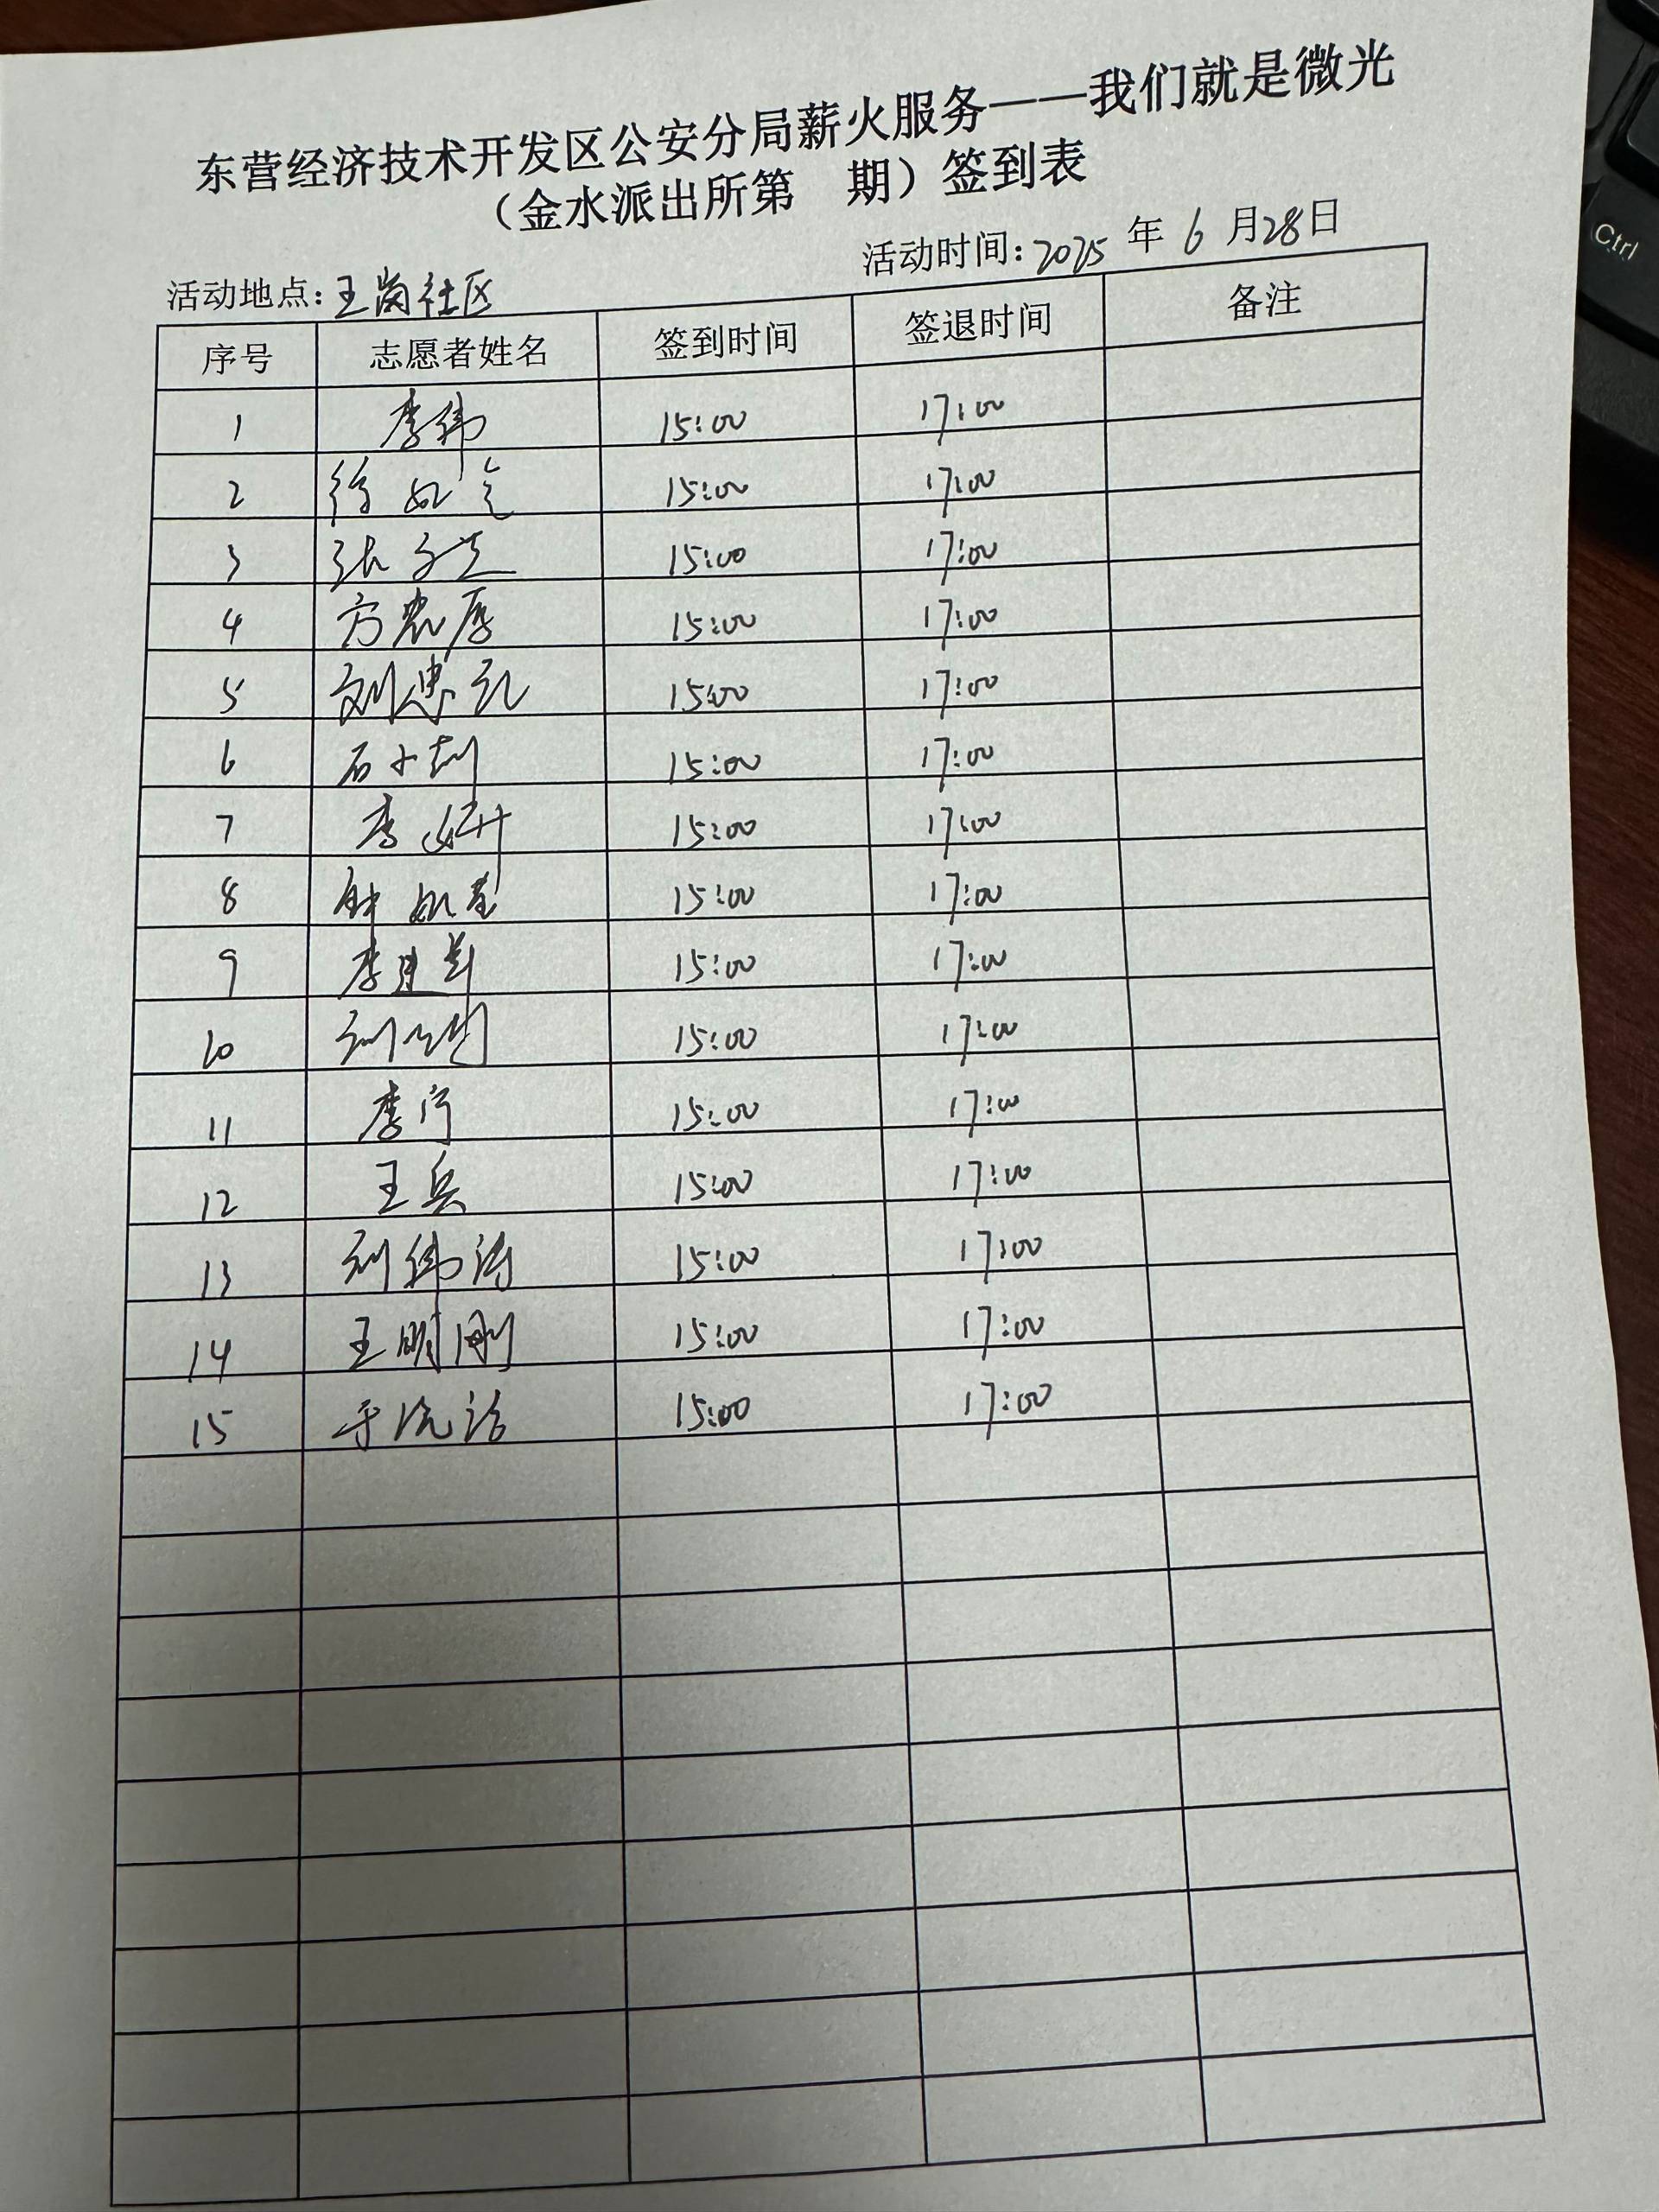 东营经济技术开发区公安分局薪火服务——我们就是微光
（金水派出所第 期）签到表
活动地点：王岗社区 活动时间：2025 年 6 月28日
序号 志愿者姓名 签到时间 签退时间 备注
1 李伟 15:00 17:00
2 徐如 15:00 17:00
3 张 15:00 17:00
4 方 厚 15:00 17:00
5 刘忠 15:00 17:00
6 石小 15:00 17:00
7 李妍 15:00 17:00
8 钟 15:00 17:00
9 李建 15:00 17:00
10 刘 15:00 17:00
11 李宁 15:00 17:00
12 王兵 15:00 17:00
13 刘伟涛 15:00 17:00
14 王明刚 15:00 17:00
15 15:00 17:00
Ctrl